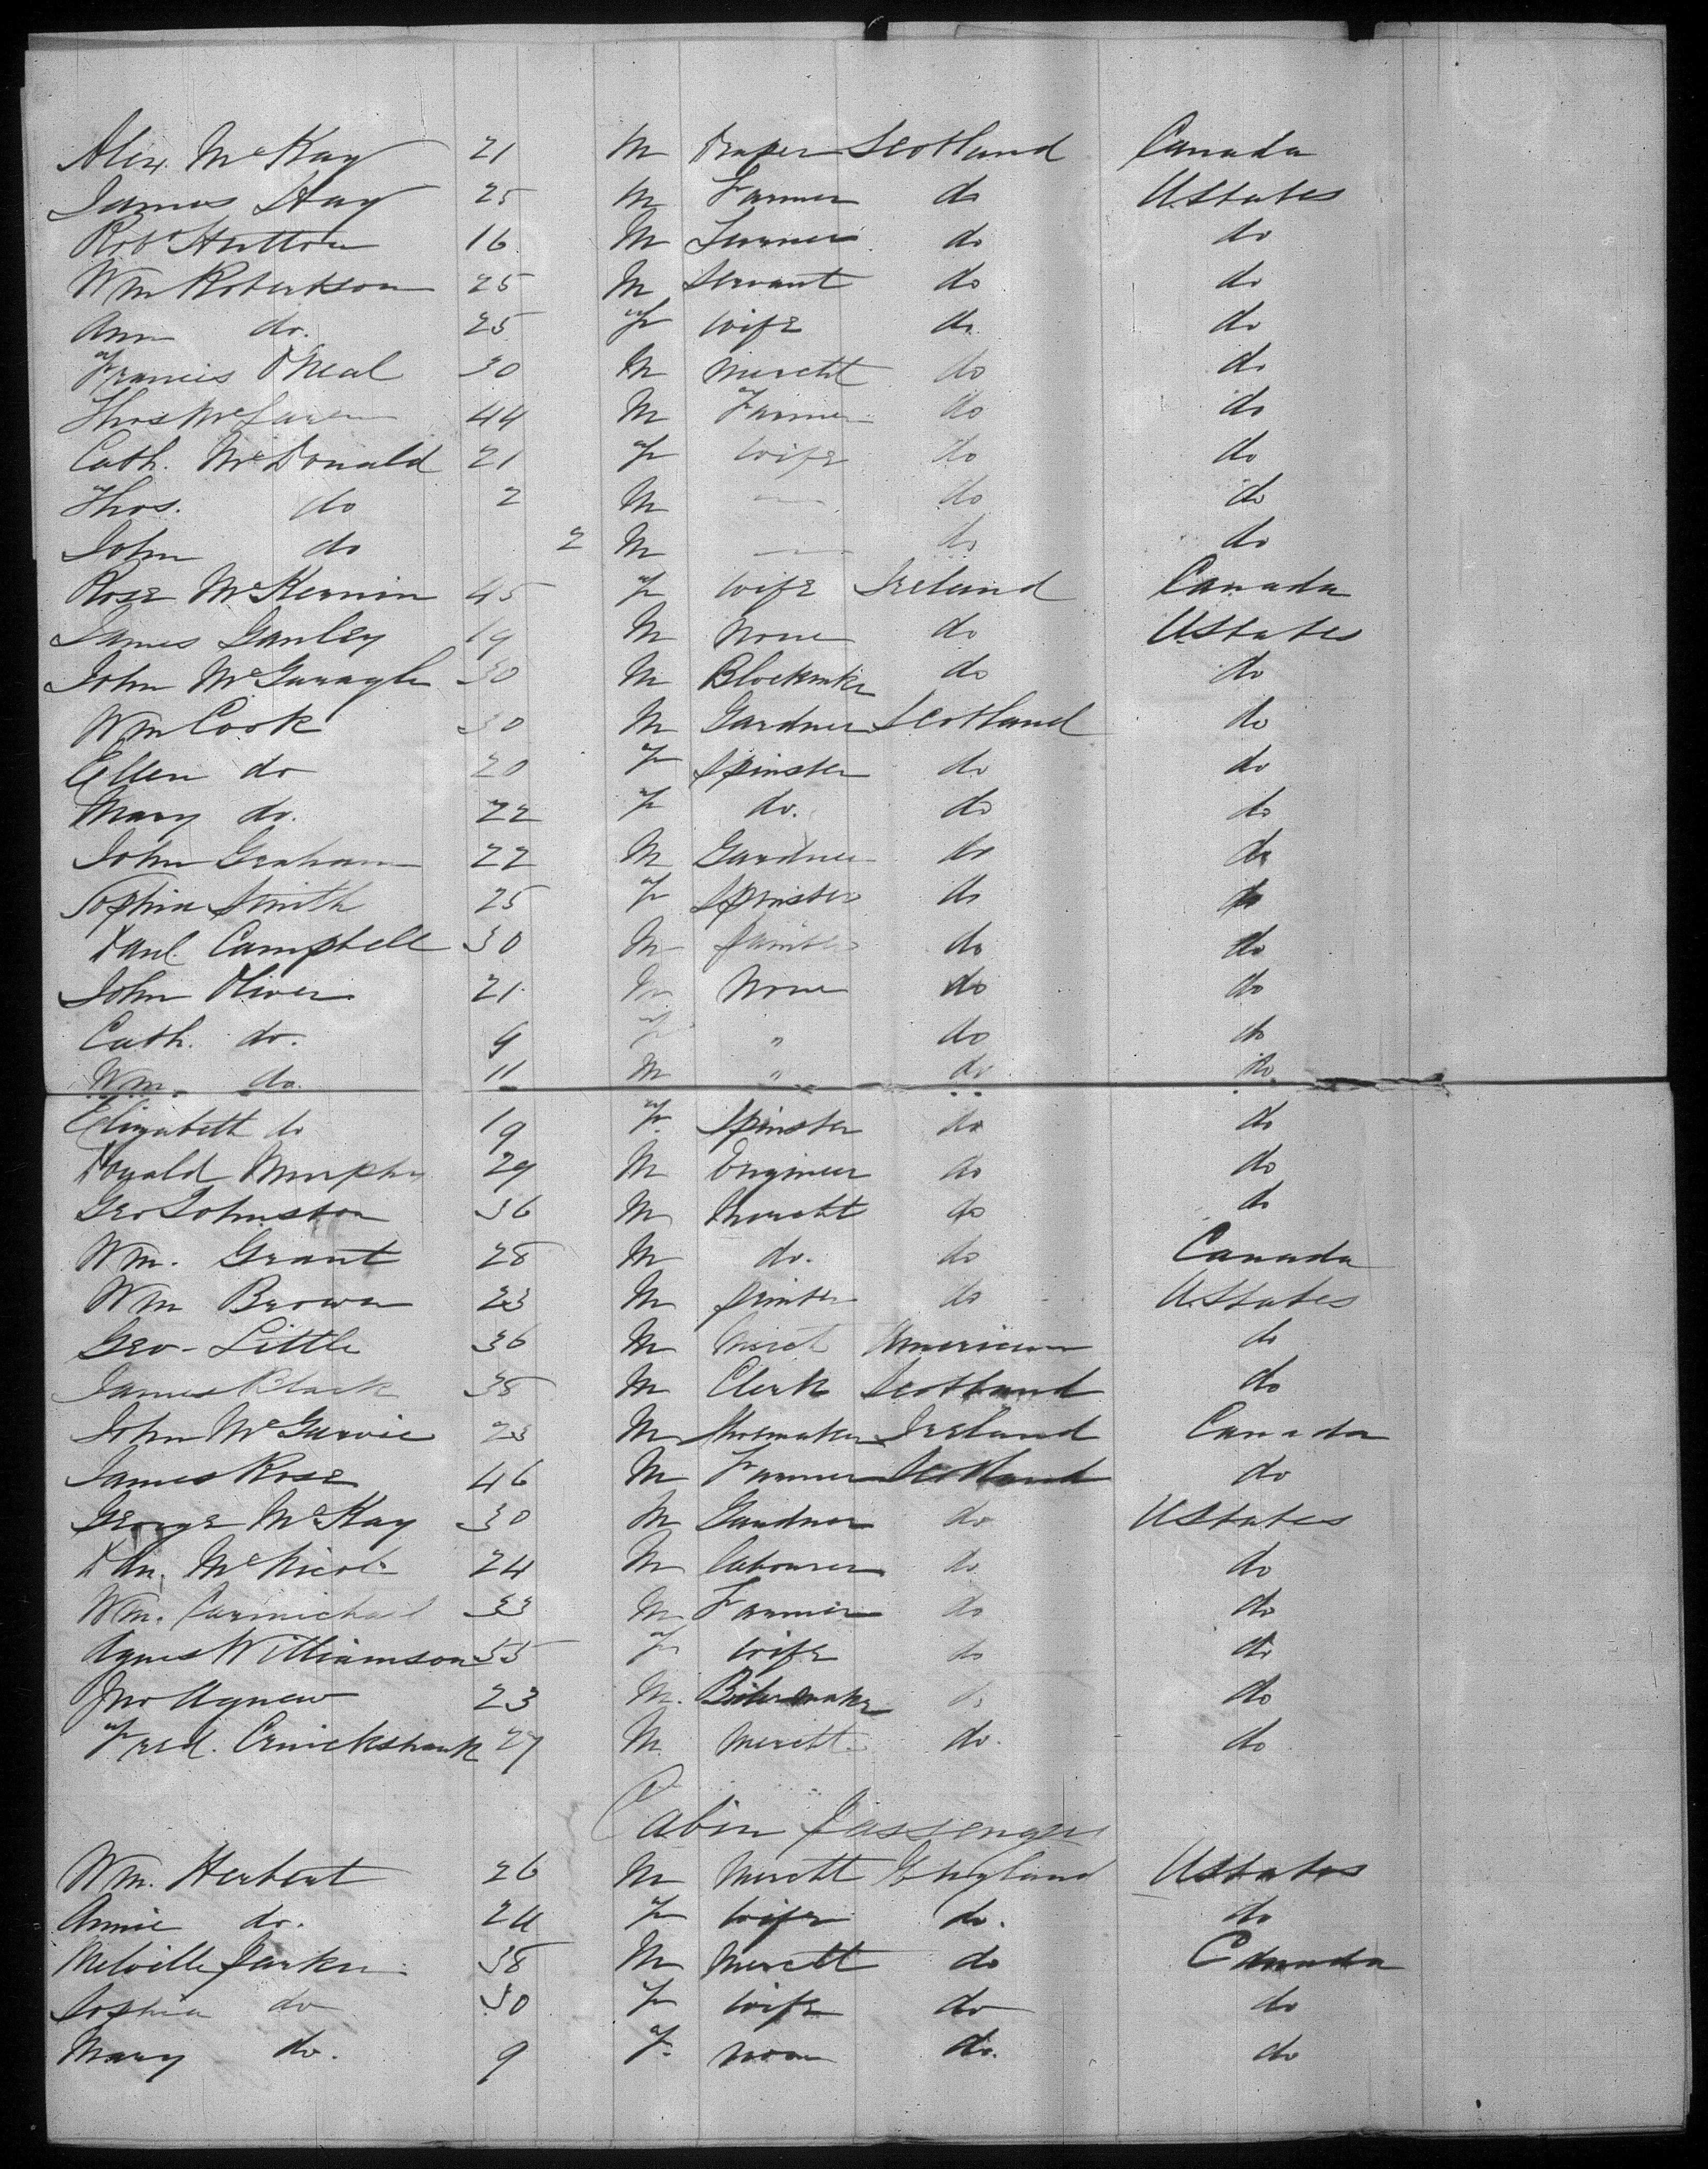 Alex. McKay 21 M Draper Scotland Canada
James Hay 25 M Farmer do UStates
Robt Hutton 16 M Farmer do do
Wm Robertson 25 M Servant do do
Ann do. 25 F wife do do
Francis O'Neal 30 M mercht do do
Thos McLaren 44 M Farmer do do
Cath. McDonald 21 F wife do do
Thos. do 2 M — do do
John do 2 M — do do
Rose McKernin 45 F wife Ireland Canada
James Ganley 19 M None do UStates
John McGunagle 30 M Blockmkr do do
Wm Cook 30 M Gardner Scotland do
Ellen do 20 F Spinster do do
Mary do. 22 F do. do do
John Graham 22 M Gardner do do
Sophia Smith 25 F Spinster do do
Danl. Campbell 30 M do do
John Oliver 21 M None do do
Cath. do. 9 F " do do
Wm. do. 11 M " do do
Elizabeth do 19 F. Spinster do do
Donald Murphy 29 M Engineer do do
Geo Johnston 36 M Mercht do do
Wm. Grant 28 M do. do Canada
Wm Brown 23 M do UStates
Geo - Little 36 M Merct American do
James Black 38 M Clerk Scotland do
John McGarvie 23 M Shoemaker Ireland Canada
James Rose 46 M Farmer Scotland do
George McKay 30 M Gardner do UStates
Dun. McNicol 24 M labourer do do
Wm. Carmichael 33 M Farmer do do
Agnes Williamson 55 F wife do do
Jno Agnew 23 M. Boilermaker do do
Fred. Cruickshank 27 M mercht. do. do
Cabin Passengers
Wm. Herbert 26 M mercht England UStates
Annie do. 24 F wife do. do
Melville Parker 38 M mercht do Canada
Sophia do 30 F wife do do
Mary do. 9 F. none do. do